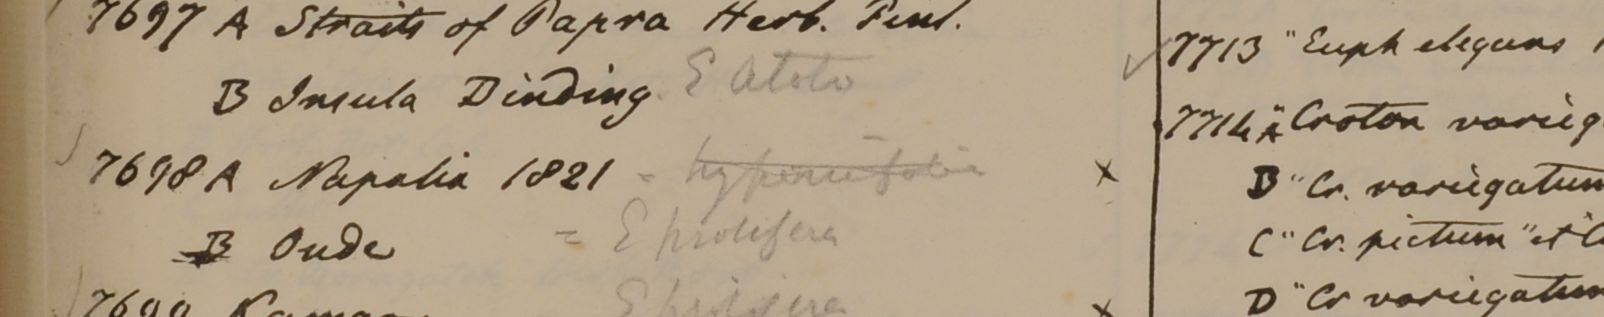 7697 A Straits of Papra Herb. Finl.
B Insula Dinding. E atoto
7698 A Napalia 1821 - hypericifolia
B Oude = E prolifera
7699 E prolifera
7713 "Euph elegans
7714 "A Croton varieg
B "Cr. variegatum
C "Cr. pictum" et C
D "Cr variegatum